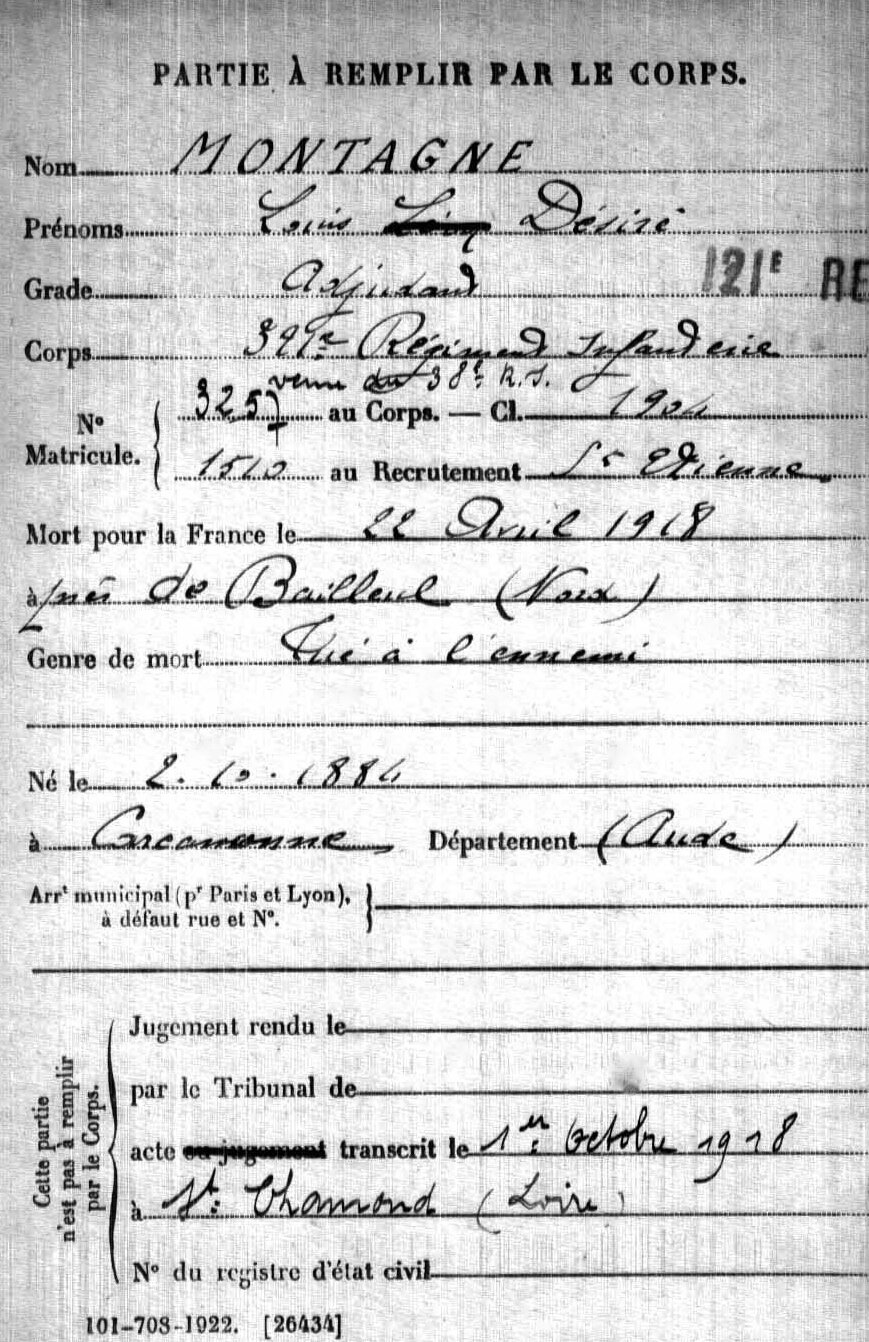 PARTIE À REMPLIR PAR LE CORPS.
Nom MONTAGNE
Prénoms Louis Désiré
Grade Adjudant
121E RE
Corps 321e Régiment Infanterie
venu du 38e R.I.
N° Matricule. 3257 au Corps. — Cl. 1904
1510 au Recrutement St Etienne
Mort pour la France le 22 Avril 1918
à près de Bailleul (Nord)
Genre de mort Tué à l'ennemi
Né le 2.10.1884
à Carcassonne, Département (Aude)
Arrt municipal (pr Paris et Lyon),
à défaut rue et N°.
Cette partie
n'est pas à remplir
par le Corps.
Jugement rendu le
par le Tribunal de
acte ou jugement transcrit le 1er Octobre 1918
à St: Chamond (Loire)
N° du registre d'état civil
101-708-1922. [26434]